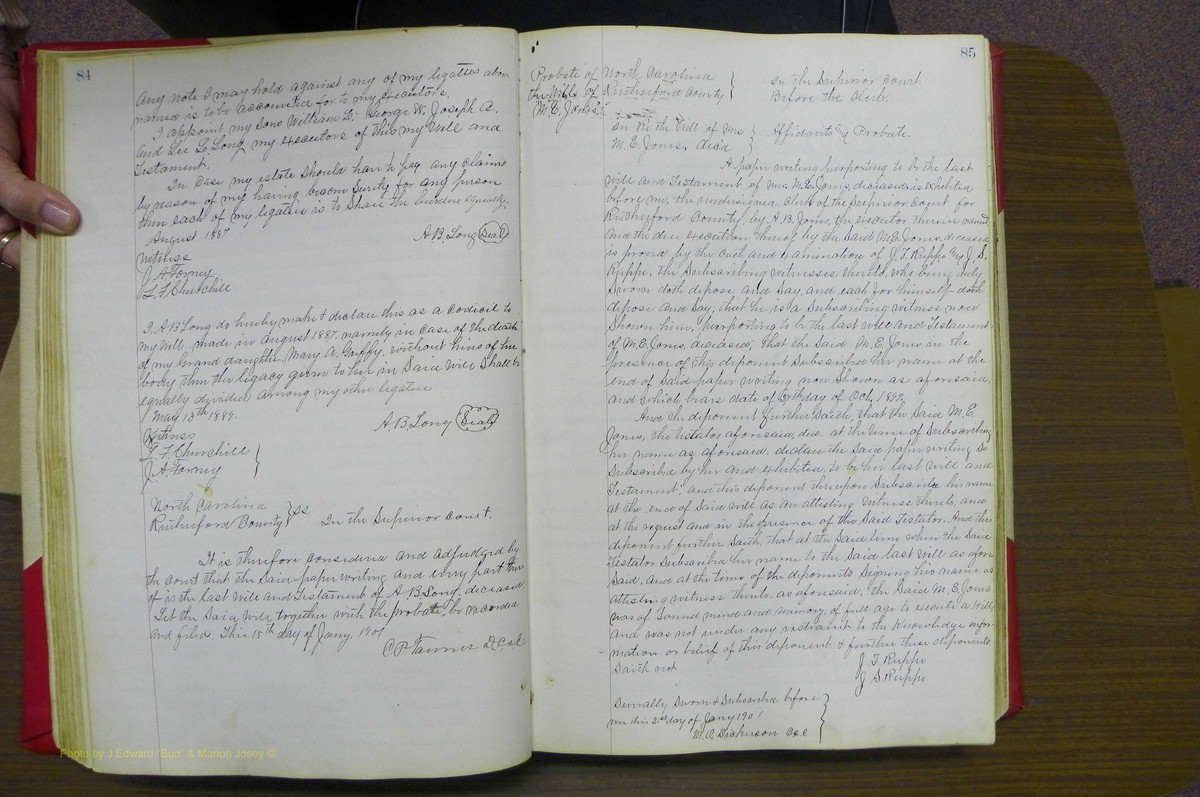 84
Any note I may hold against any of my legatees above
named is to be accounted for to my executors.
I appoint my Sons William G. George W. Joseph A.
and Lee L. Long my executors of this my Will and
Testament.
In Case my estate Should have to pay any claims
by reason of my having become Surity for any person
then each of my legatees is to Share the burden equally.
August 1887
A.B. Long (Seal)
Witness
J. A Forney
L. F. Churchill
I, A.B Long do hereby make & declare this as a Cordicil to
my Will made in August 1887. namely in case of the death
of my Grand daughter, Mary A. Guffy, without heirs of her
body then the legacy given to her in Said Will Shall be
equally divided among my other legatees
May 13th 1889.
A.B. Long (Seal)
Witness
L. F. Churchill
J. A Forney
North Carolina
Rutherford County } SS. In the Superior Court.
It is therefore Considered and adjudged by
the Court that the Said paper writing and every part there
of is the last Will and Testament of A B. Long, deceased
Let the Said Will together with the probate, be recorded
and filed, This 15th day of Jany. 1901
C P Tanner D. C S C
85
Probate of
the Will of
M. E. Jones
North Carolina
Rutherford County }
In the Superior Court
Before the Clerk.
In Re the Will of Mrs
M. E. Jones, dec'd } Affidavit of Probate
A paper writing purporting to be the last
will and Testament of Mrs M. E. Jones, deceased, is exhibited
before me, the undersigned Clerk of the Superior Court for
Rutherford County, by A. B. Jones, the executor therein named
and the due execution thereof by the Said M. E. Jones, deceased
is proved by the oath and examination of J. T. Ruppe & J. S.
Ruppe, the Subscribing witnesses thereto, who being duly
Sworn doth depose and Say, and each for himself doth
depose and Say, that he is a Subscribing witness now
Shown him, purporting to be the last will and Testament
of M. E. Jones, deceased; that the Said M. E. Jones in the
presence of this deponent Subscribed her name at the
end of Said paper writing now Shown as aforesaid,
and which bears date of day of Oct, 1899
And the deponent further Saith, that the Said M. E.
Jones, the testator aforesaid, did, at the time of Subscribing
her name as aforesaid, declare the Said paper writing So
Subscribed by her and exhibited, to be her last will and
Testament; and this deponent thereupon Subscribed his name
at the end of Said will as an attesting witness thereto, and
at the request and in the presence of the Said Testator. And this
deponent further Saith, that at the Said time when the Said
Testator Subscribed her name to the Said last will as afore
Said, and at the time of the deponents Signing his name as
attesting witness thereto, as aforesaid, the Said M. E. Jones
was of Sound mind and memory, of full age to execute a will
and was not under any restraint to the knowledge infor-
mation or belief of this deponent, & further these deponents
Saith not
J. T Ruppe
J S Ruppe
Severally Sworn & Subscribed before
me this 2nd day of Jany 1901
M. O. Dickerson C.S.C
Photo by J Edward "Bud" & Marion Josey ©